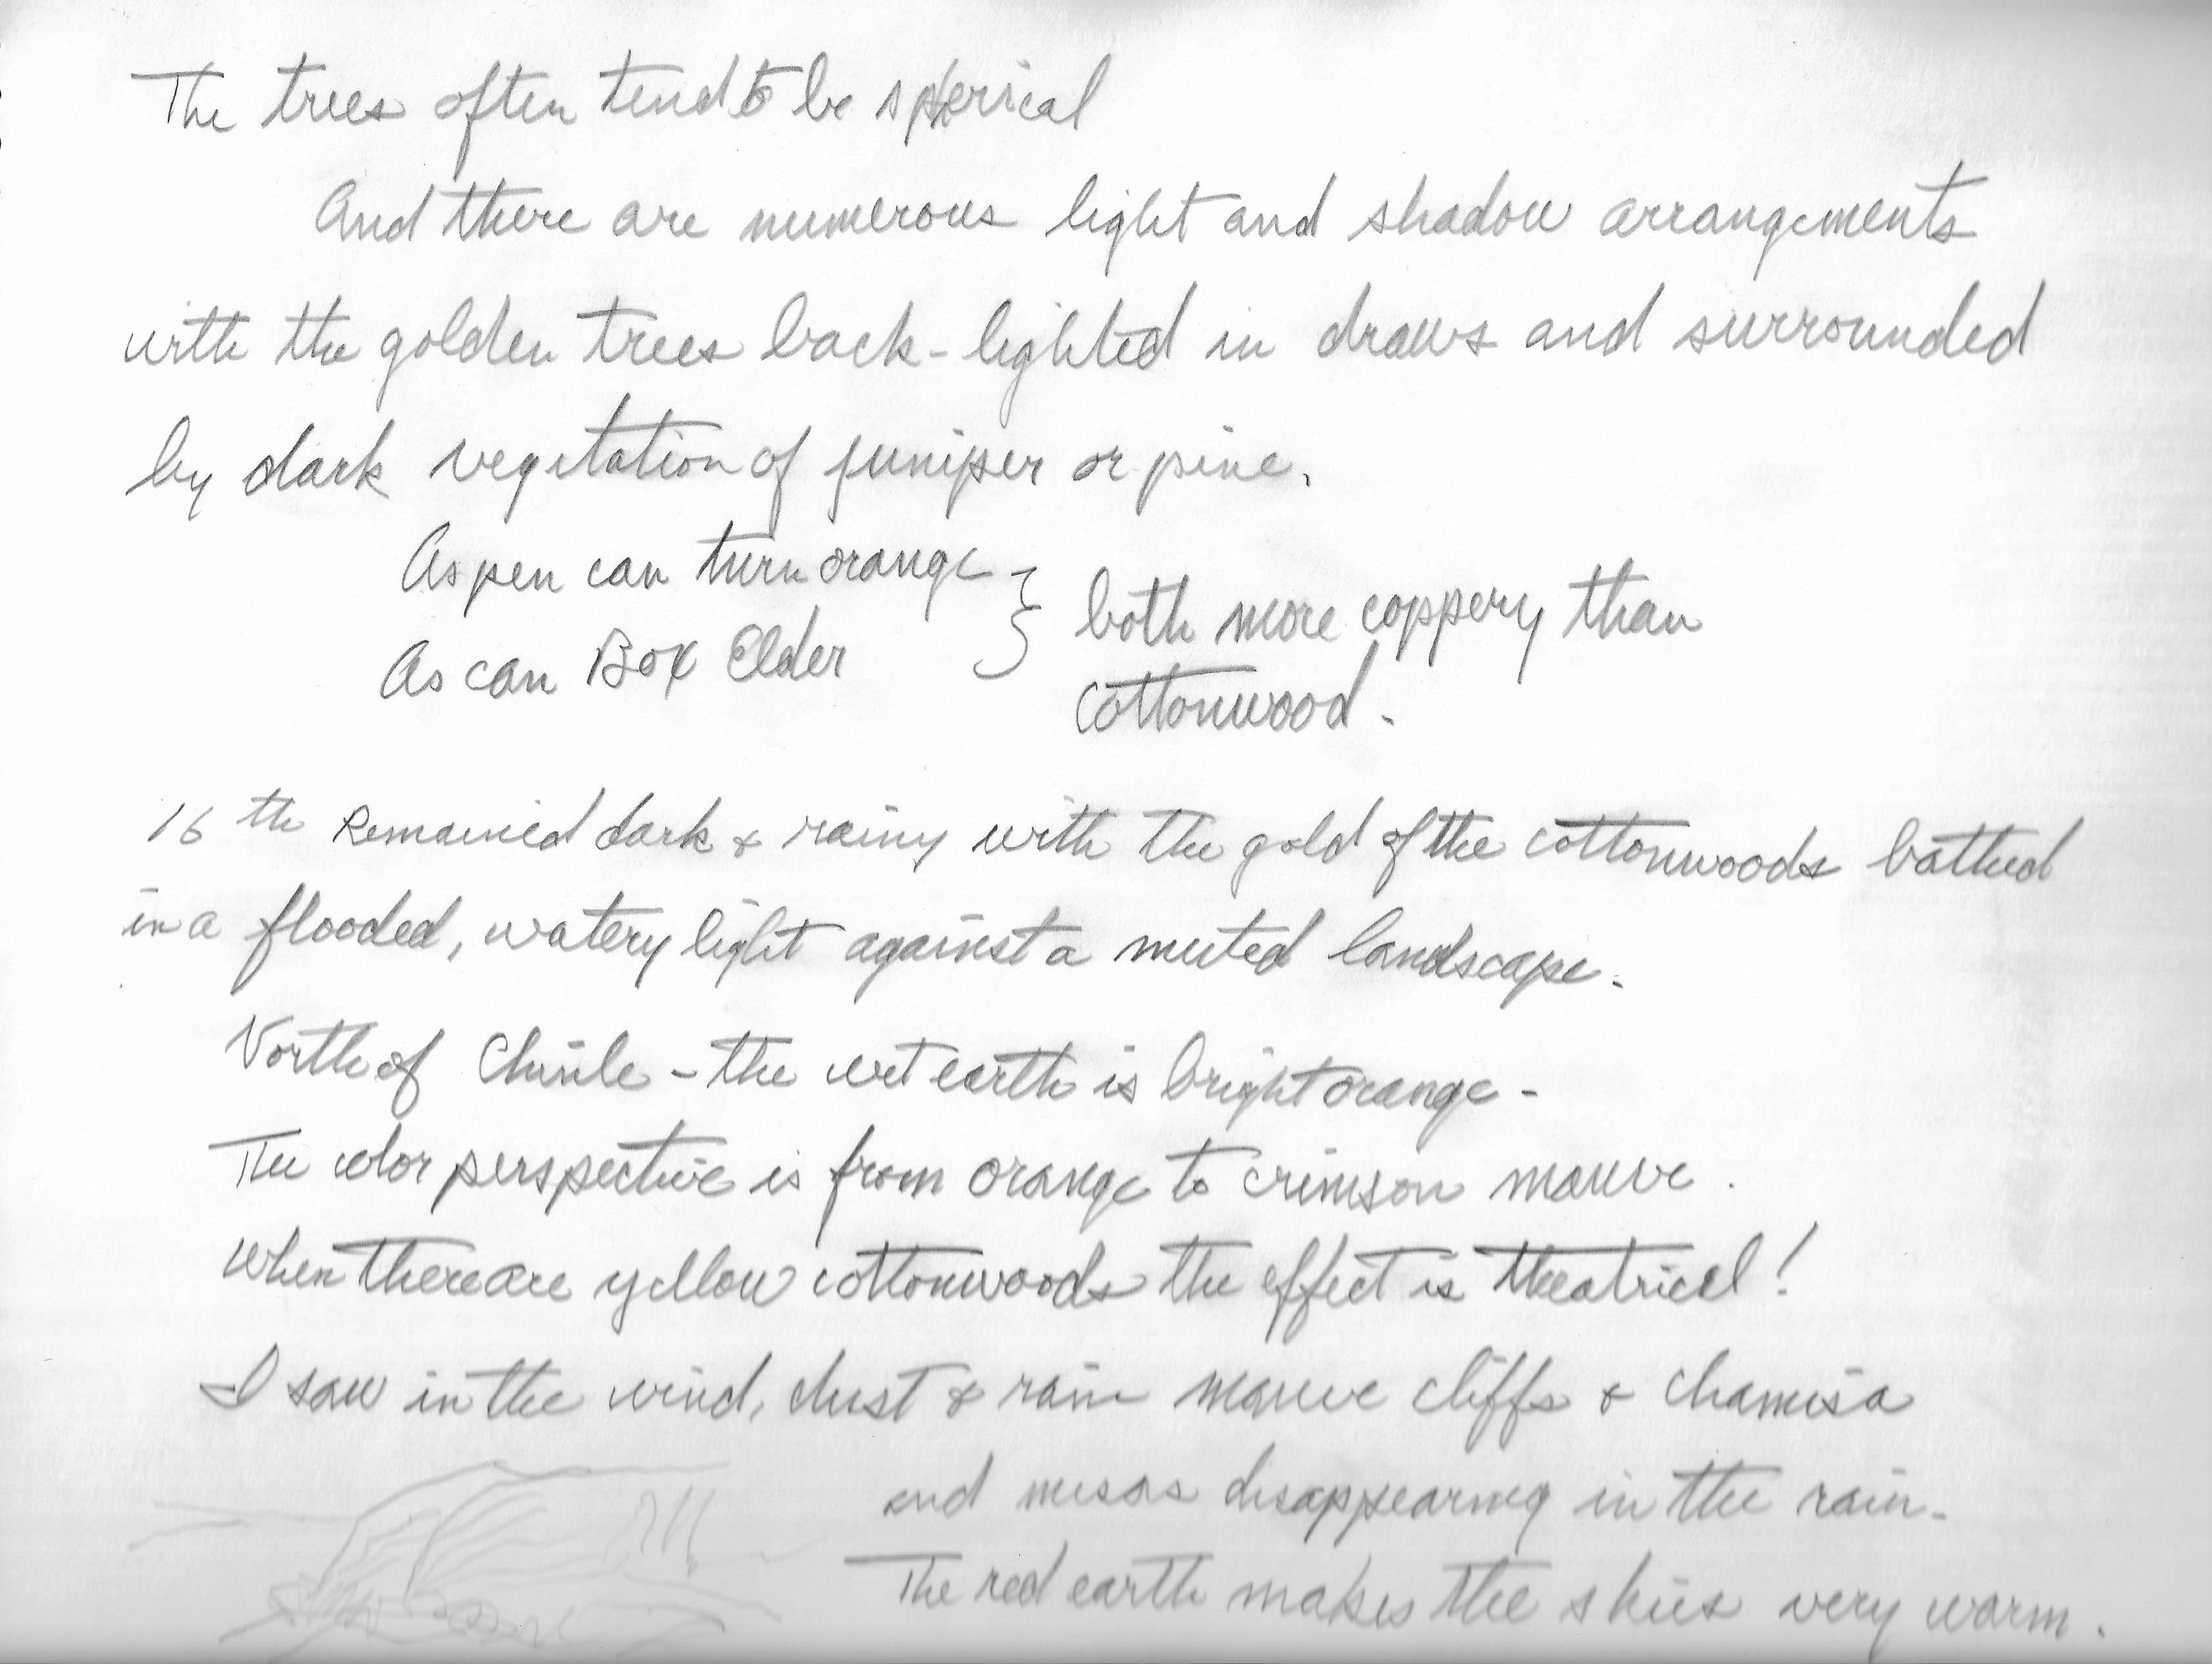 The trees often tend to be spherical
And there are numerous light and shadow arrangements
with the golden trees back-lighted in draws and surrounded
by dark vegetation of juniper or pine.
Aspen can turn orange }
As can Box Elder
both more coppery than
cottonwood.
16th Remained dark & rainy with the gold of the cottonwoods bathed
in a flooded, watery light against a muted landscape.
North of Chinle - the wet earth is bright orange -
The color perspective is from orange to crimson mauve.
When there are yellow cottonwoods the effect is theatrical!
I saw in the wind, dust & rain mauve cliffs & chamisa
and mesas disappearing in the rain.
The red earth makes the skies very warm.